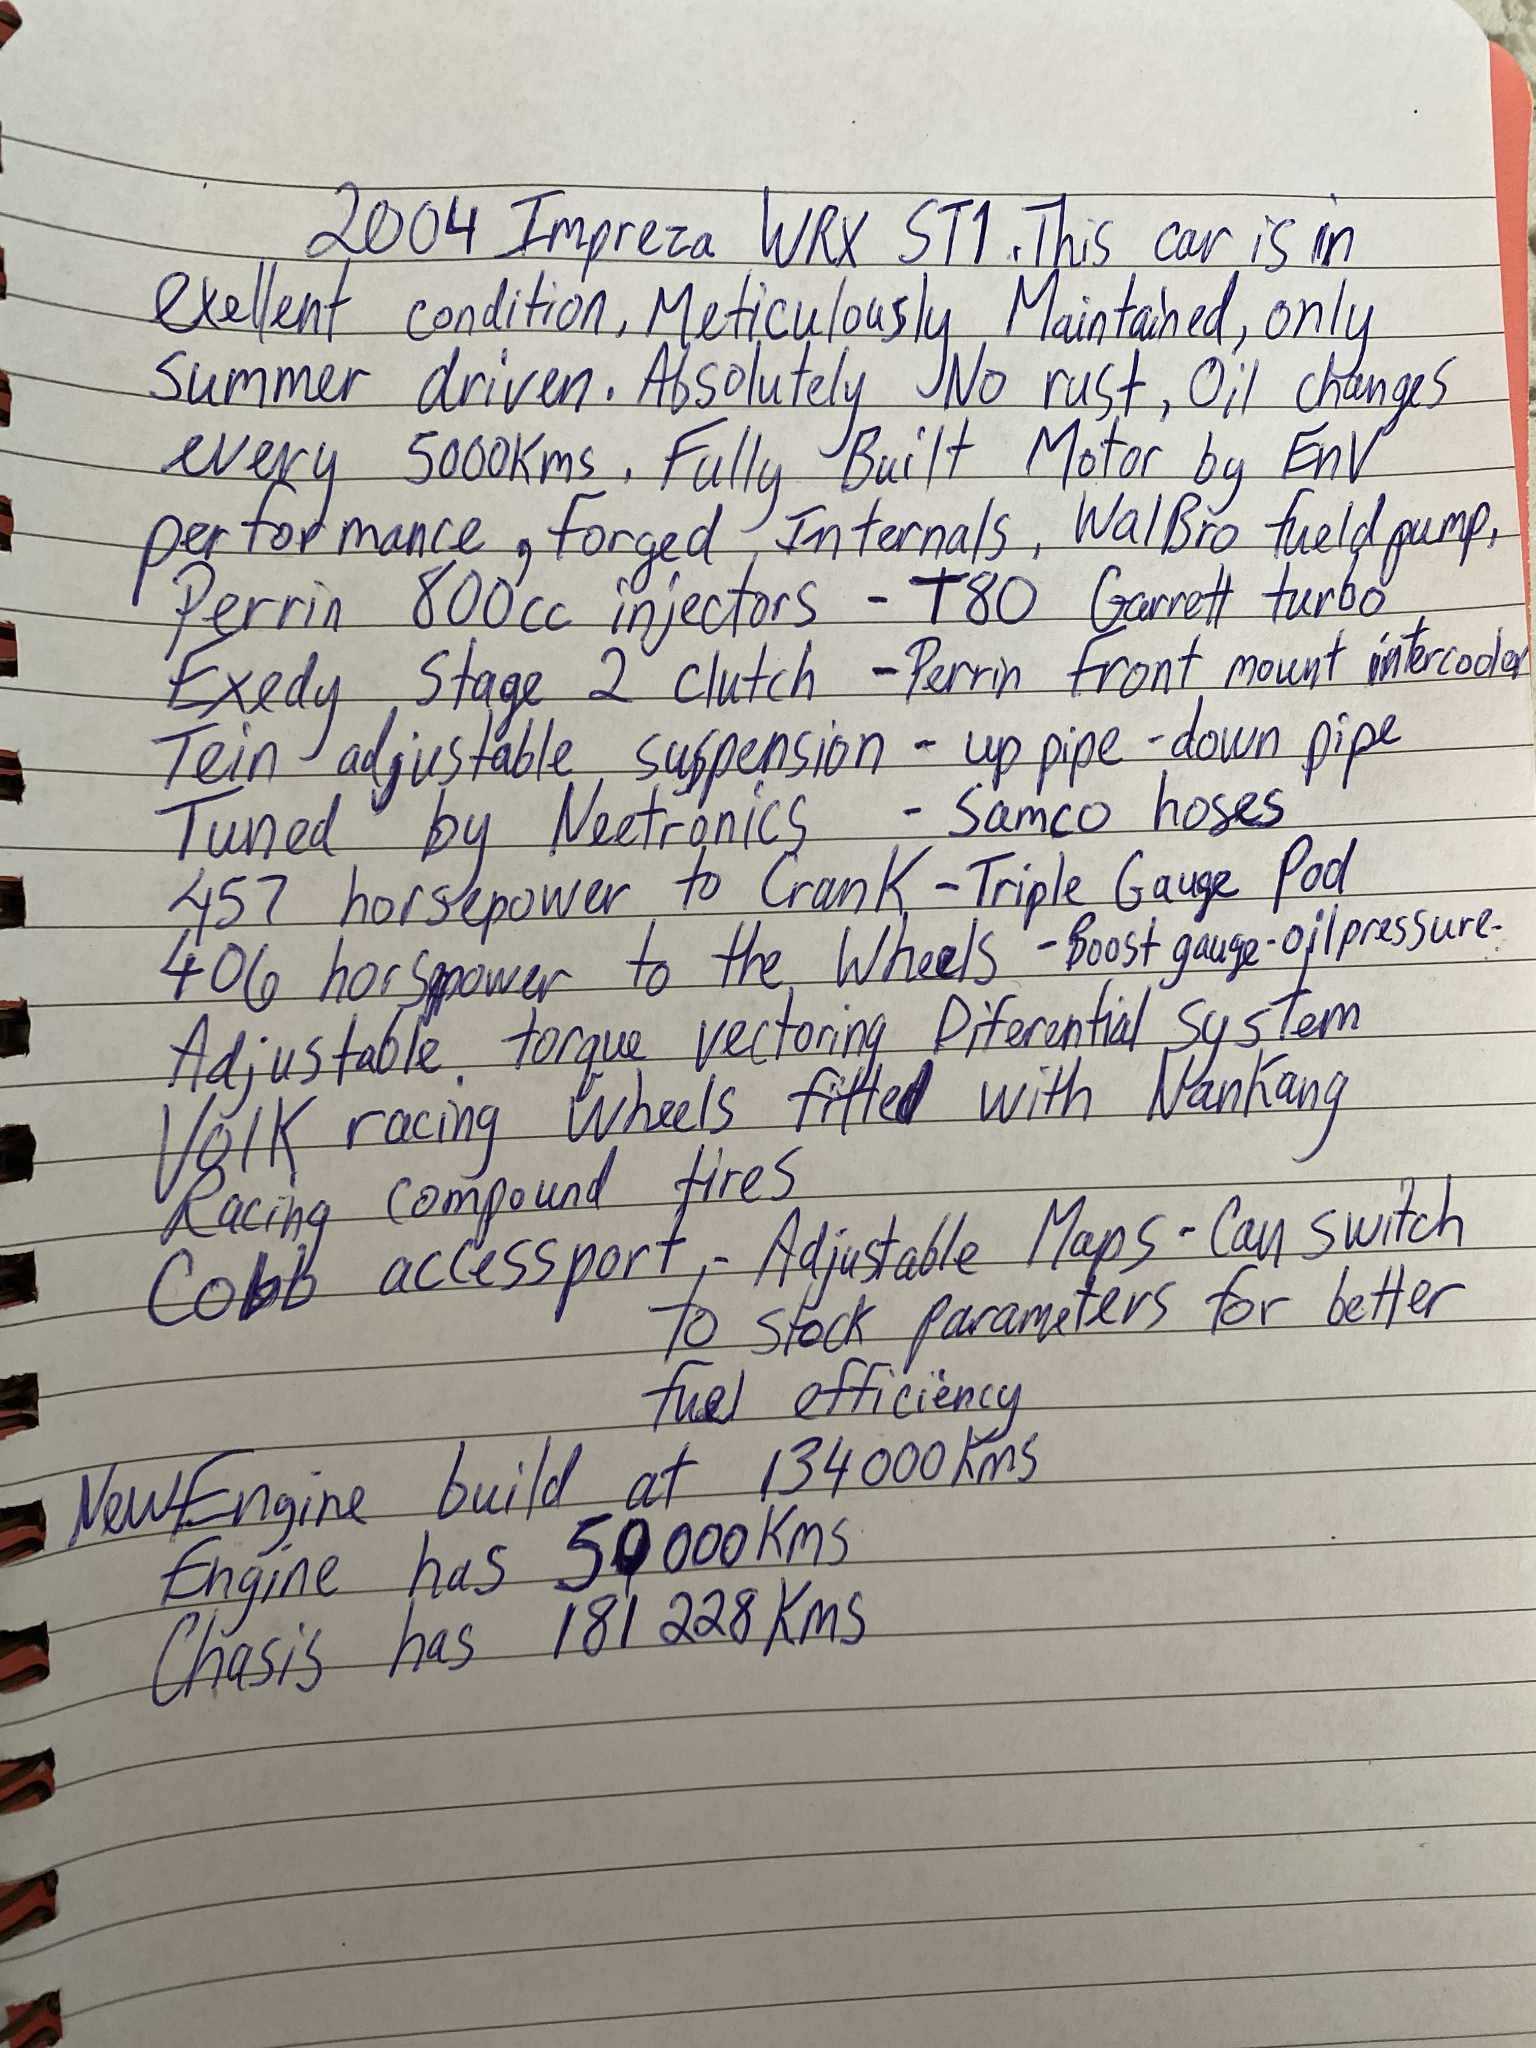 2004 Impreza WRX ST1. This car is in
exellent condition, Meticulously Maintained, only
summer driven. Absolutely No rust, Oil changes
every 5000Kms. Fully Built Motor by EnV
performance, forged Internals, WalBro fueld pump,
Perrin 800cc injectors - T80 Garrett turbo
Exedy Stage 2 clutch - Perrin front mount intercooler
Tein adjustable suspension - up pipe - down pipe
Tuned by Neetronics - Samco hoses
457 horsepower to Crank - Triple Gauge Pod
406 horsepower to the Wheels - Boost gauge - oil pressure -
Adjustable torque vectoring Diferential system
Volk racing wheels fitted with Nankang
Racing compound tires
Cobb accessport - Adjustable Maps - Can switch
to stock parameters for better
fuel efficiency
New Engine build at 134000Kms
Engine has 000Kms
Chasis has 181 228Kms